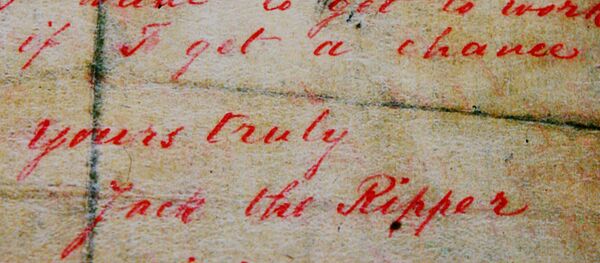 want to get to work
if I get a chance
yours truly
Jack the Ripper